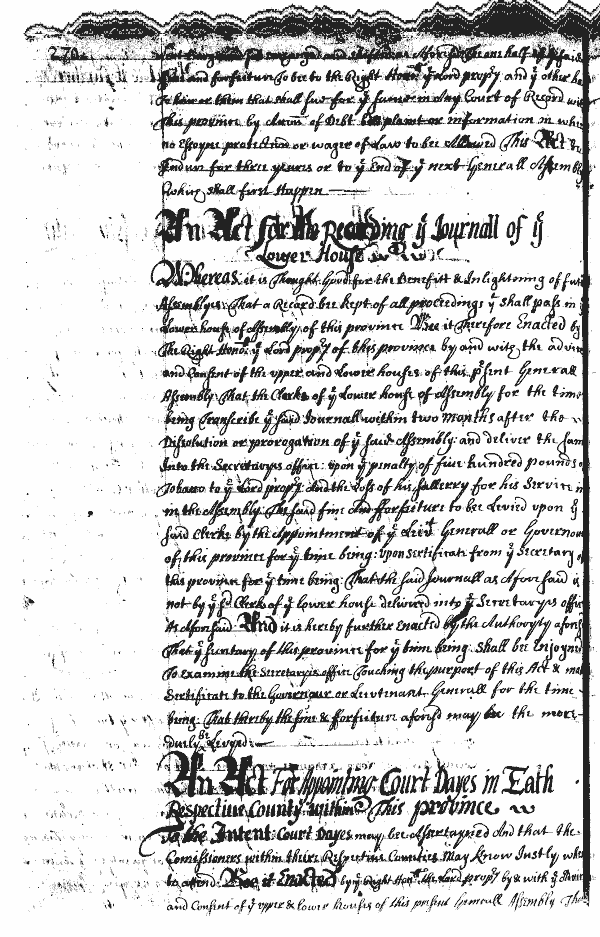 270
and forfeiture to bee to the Right Hono: ye Lord propy and ye other
to him or them that shall sue for ye same in Any Court of Record
this province by Accon of Debt bill plaint or information in
no Essoyne protection or wager of Law to bee Allowed This Act to
Endure for three years or to ye End of ye next Generall Assembly
which shall first Happen
An Act For the Recording ye Journall of ye
Lower House
Whereas it is Thought Good for the Benefitt & Inlightning of
Assemblyes That a Record bee kept of all proceedings yt shall pass in
Lower house of Assembly of this province Bee it Therefore Enacted by
the Right Hono: ye Lord propy of this province by and with the advice
and Consent of the upper and Lower houses of this psent Generall
Assembly That the Clerks of ye Lower house of Assembly for the time
being Transcribe ye said Journall within two Months after the
Dissolution or prorogation of ye said Assembly and deliver the same
Into the Secretarys office: upon ye penalty of five hundred pounds
Tobacco to ye Lord propy And the Loss of his sallerry for his Service
in the Assembly The said fine And fforfeiture to bee Levied upon ye
said Clerks by the Appointment of ye Leivt Generall or Governour
of this province for ye time being: upon Sertificate from ye Secretary
this province for ye time being: That the said Journall as Aforesaid is
not by ye sd Clerks of ye Lower house delivered into ye Secretarys office
As Aforesaid And it is hereby further Enacted by the Authoryty
That ye Secretary of this province for ye time being shall be Enjoyned
To Examine the Secretarys office Touching the purport of this Act &
Sertificate to the Governour or Lieutenant Generall for the time
being That thereby the fine & fforfeiture aforesd may be the more
duely be Levyed
An Act For Appointing Court Dayes in Each
Respective County within This province
To the Intent Court Dayes may be Assertayned And that the
Comissioners within theire Respective Counties May Know Justly
to attend Bee it Enacted by ye Right Hono the Lord propy by & with ye
and Consent of ye upper & Lower houses of this present Generall Assembly